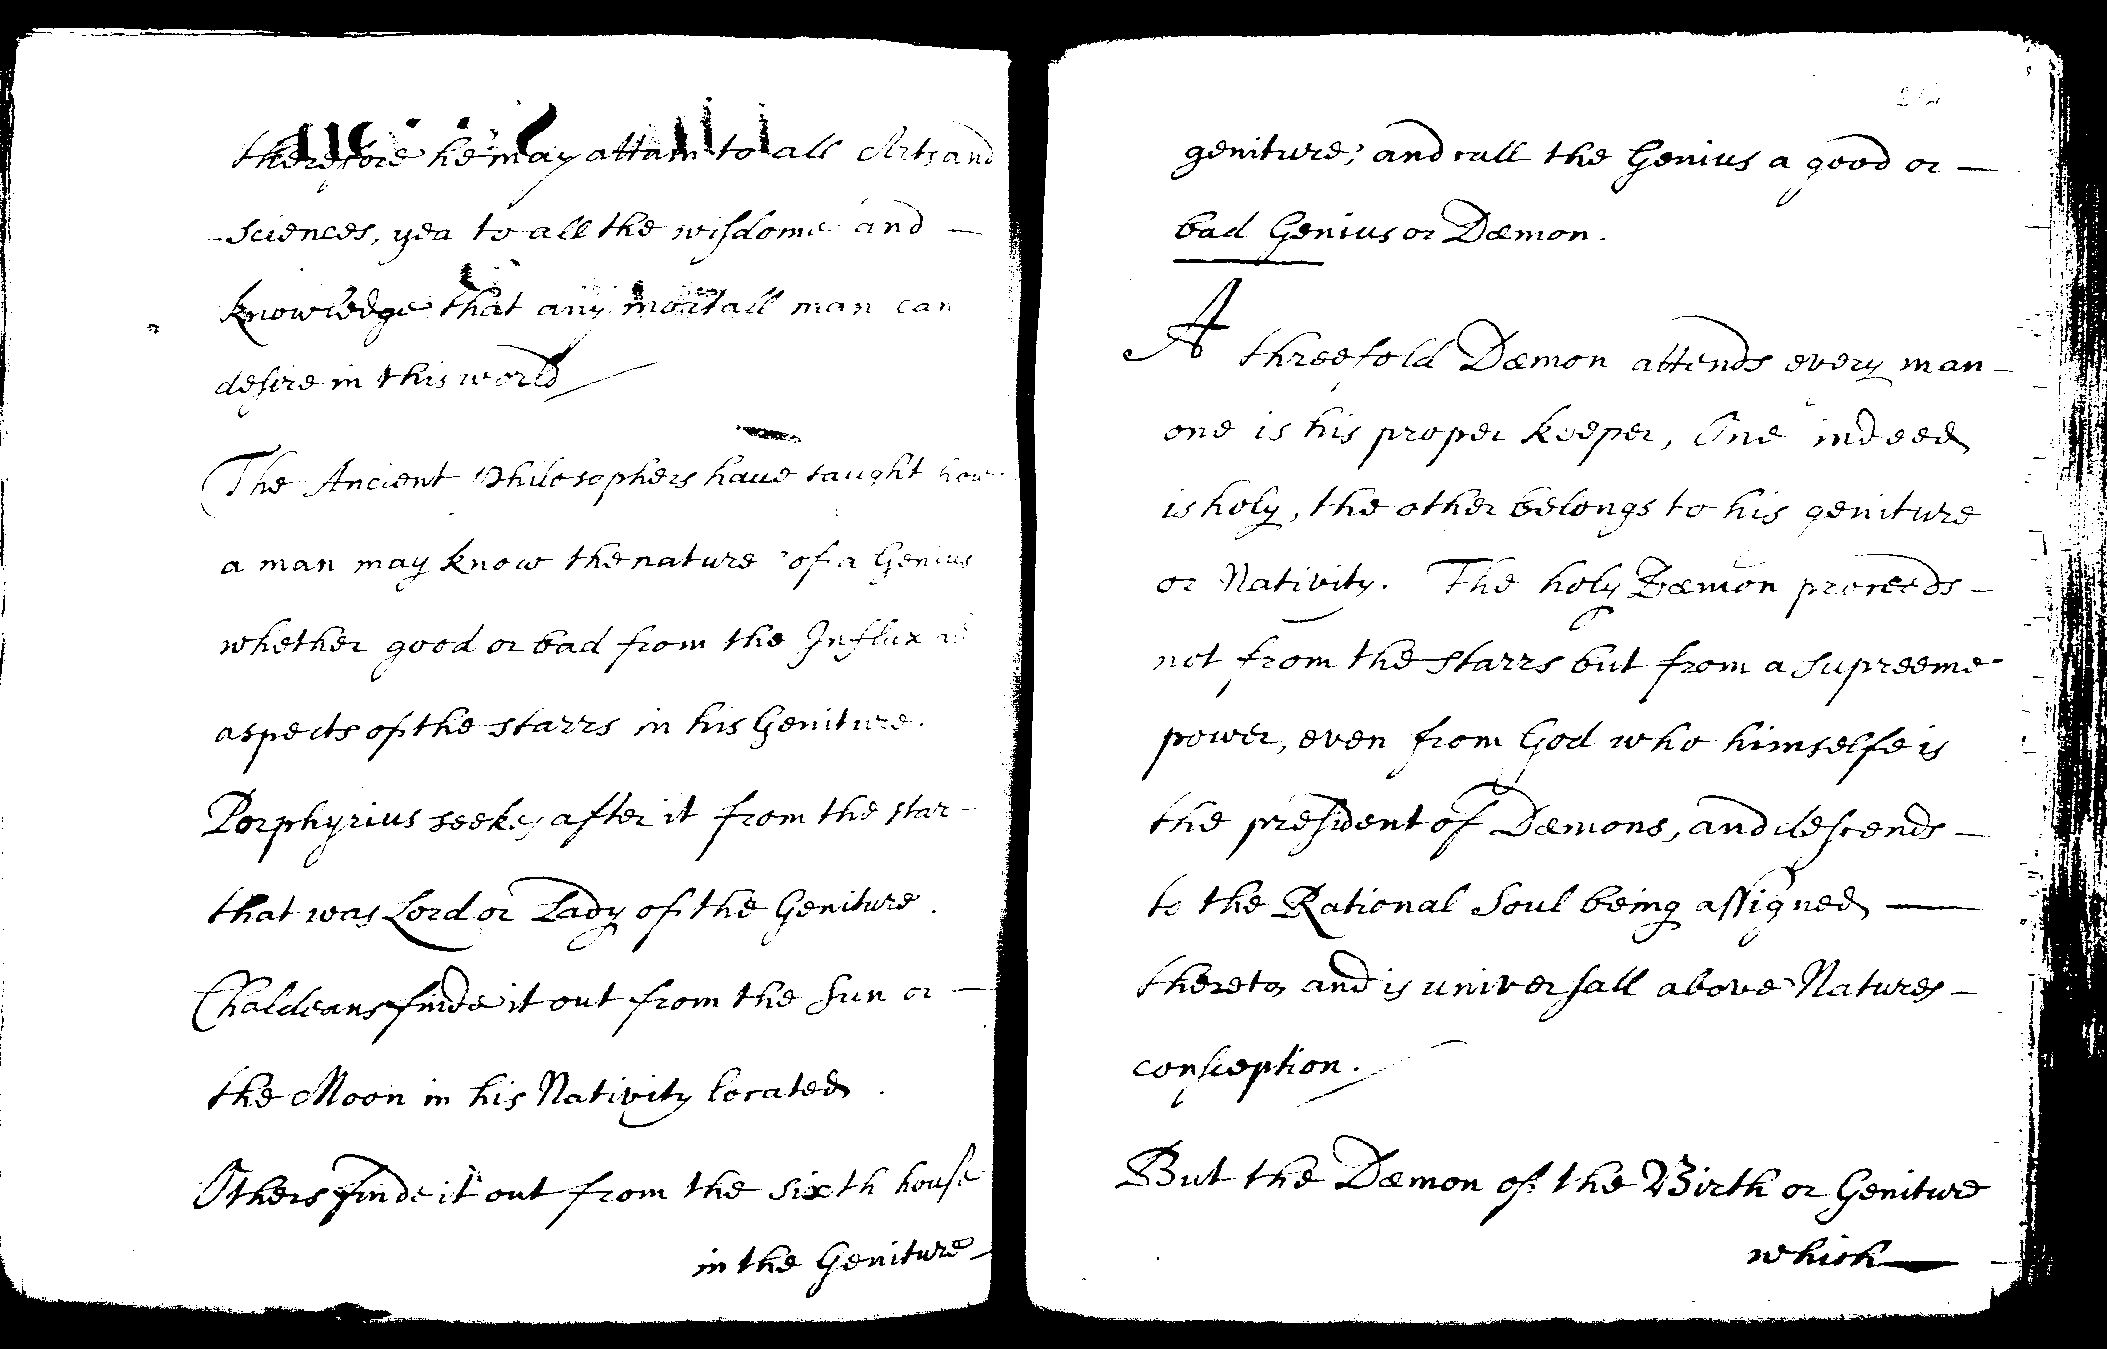 therefore he may attain to all Arts and
sciences, yea to all the wisdome and —
knowledge that any mortall man can
desire in this world
The Ancient Philosophers have taught how
a man may know the nature of a Genius
whether good or bad from the Influx
aspects of the starrs in his Geniture.
Porphyrius seekes after it from the star —
that was Lord or Lady of the Geniture.
Chaldeans finde it out from the Sun or —
the Moon in his Nativity located.
Others finde it out from the sixth house
in the Geniture —
geniture, and call the Genius a good or —
bad Genius or Dæmon.
A threefold Dæmon attends every man —
one is his proper keeper, One indeed
is holy, the other belongs to his geniture
or Nativity. The holy Dæmon proceeds —
not from the starrs but from a supreeme
power, even from God who himselfe is
the president of Dæmons, and descends —
to the Rational Soul being assigned —
thereto, and is universall above Natures —
consception.
But the Dæmon of the Birth or Geniture
which —